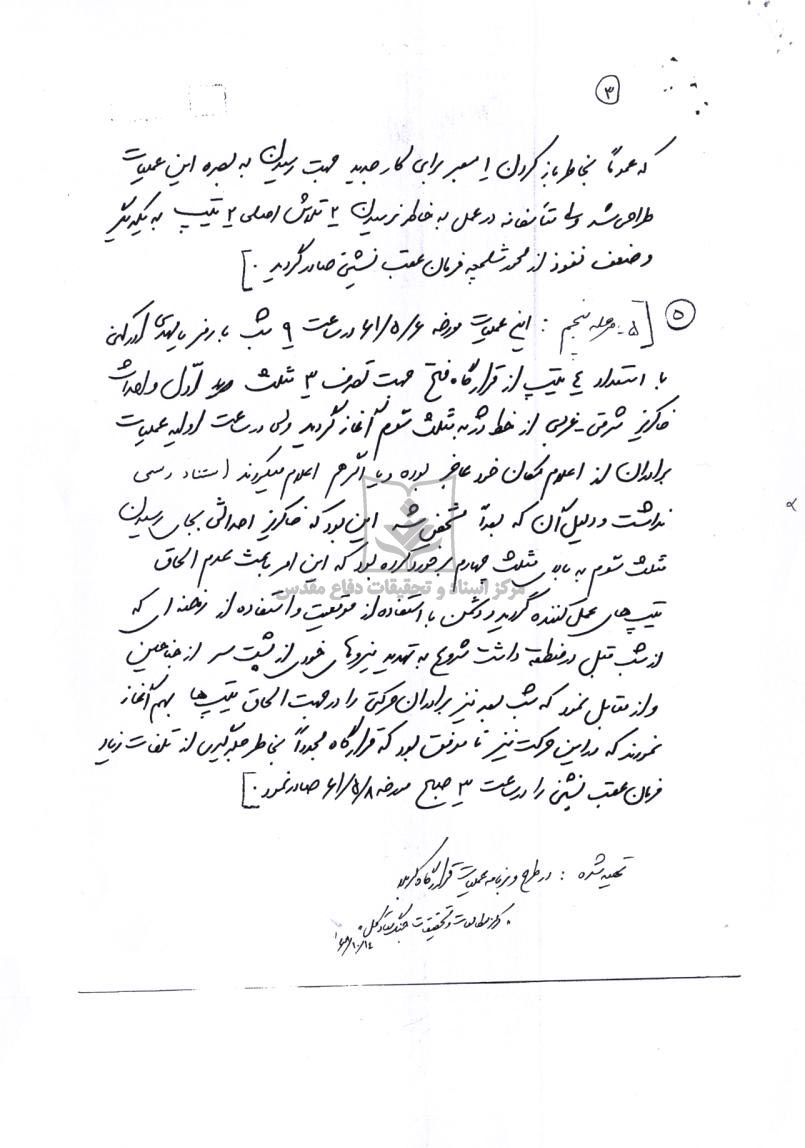 ۳
که عمدتاً بخاطر باز کردن ۱ معبر برای کار جدید جهت رسیدن به بصره این عملیات
طراحی شد ولی متأسفانه در عمل به خاطر نرسیدن ۲ تلاش اصلی ۲ تیپ به یکدیگر
و ضعف نفوذ از محور شلمچه فرمان عقب نشینی صادر گردید .]
۵ [۵ـ مرحله پنجم : این عملیات مورخه ۶۱/۵/۶ در ساعت ۹ شب با رمز یا مهدی ادرکنی
با استعداد ٤ تیپ از قرارگاه فتح جهت تصرف ۳ مثلث اوّل و احداث
خاکریز شرقی-غربی از خط دژ به مثلث سوّم آغاز گردید ولی در ساعت اولیه عملیات
برادران از اعلام مکان خود عاجز بوده و یا اگر هم اعلام میکردند استناد رسمی
نداشت و دلیل آن که بعداً مشخص شد این بود که خاکریز احداثی بجای رسیدن
مثلث سوّم به بالای مثلث چهارم برخورد کرده بود که این امر باعث عدم الحاق
مرکز اسناد و تحقیقات دفاع مقدس
تیپ های عمل کننده گردید و دشمن با استفاده از موقعیت و استفاده از رخنه ای که
از شب قبل در منطقه داشت شروع به تهدید نیروهای خودی از پشت سر از جناحین
و از مقابل نمود که شب بعد نیز برادران حرکتی را در جهت الحاق تیپ ها بهم آغاز
نمودند که در این حرکت نیز نا موفق بود که قرارگاه مجدداً بخاطر جلوگیری از تلفات زیاد
فرمان عقب نشینی را در ساعت ۳ صبح مورخه ۶۱/۵/۸ صادر نمود .]
تهیه شده : در طرح و برنامه عملیات قرارگاه کربلا
مرکز مطالعات و تحقیقات جنگ ستاد کل